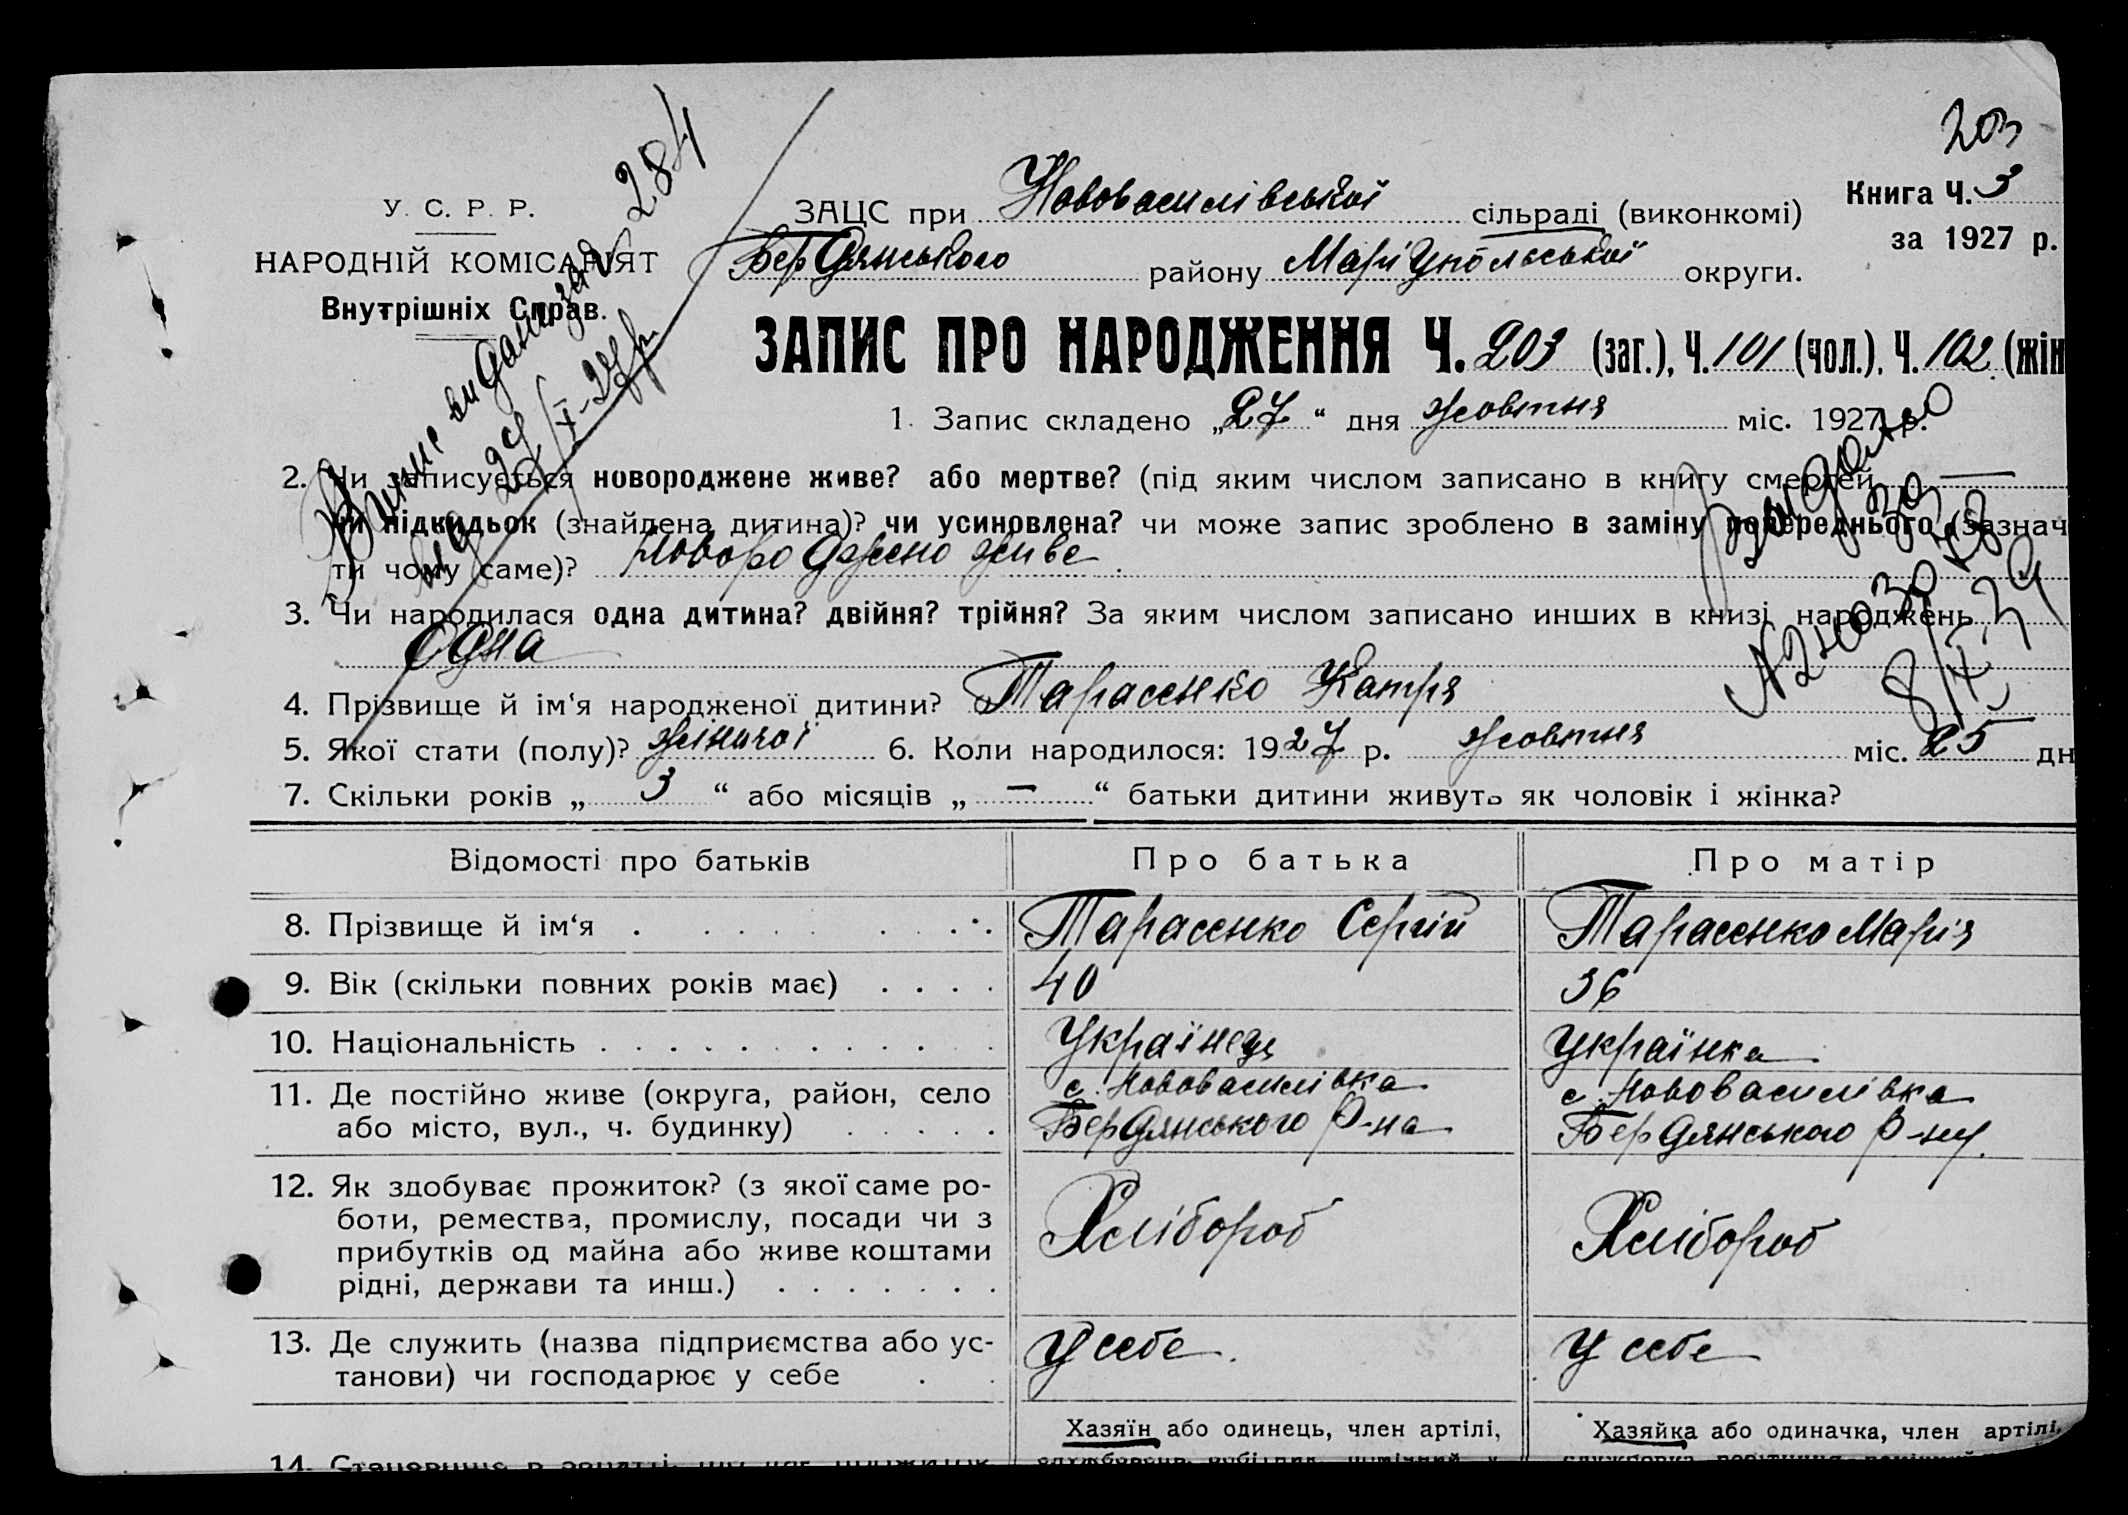 203
У. С. Р. Р.
НАРОДНІЙ КОМІСАРІЯТ
Внутрішніх Справ.
ЗАЦС при Нововасилівської сільраді (виконкомі)
Бердянського району Маріупольської округи.
Книга Ч. 3
за 1927 р.
ЗАПИС ПРО НАРОДЖЕННЯ Ч. 203 (заг.), Ч. 101 (чол.), Ч. 102 (жін
Випис видани за 284
від 29/X-27 р.
1. Запис складено „27“ дня жовтня міс. 1927 р.
2. Чи записується новороджене живе? або мертве? (під яким числом записано в книгу смертей —
чи підкидьок (знайдена дитина)? чи усиновлена? чи може запис зроблено в заміну попереднього (зазнач
ти чому саме)? Новороджено живе
3. Чи народилася одна дитина? двійня? трійня? За яким числом записано инших в книзі народжень
одна
4. Прізвище й ім‘я народженої дитини? Тарасенко Катря
5. Якої стати (полу)? жіночої 6. Коли народилося: 1927 р. жовтня міс. 25 дн
7. Скільки років „ 3 “ або місяців „ — “ батьки дитини живуть як чоловік і жінка?
Відомості про батьків Про батька Про матір
8. Прізвище й ім‘я Тарасенко Сергій Тарасенко Марія
9. Вік (скільки повних років має) 40 36
10. Національність Українець Українка
11. Де постійно живе (округа, район, село с. Нововасилівка с. Нововасилівка
або місто, вул., ч. будинку) Бердянського Р-на Бердянського Р-ну.
12. Як здобуває прожиток? (з якої саме ро-
боти, ремества, промислу, посади чи з Хлібороб Хлібороб
прибутків од майна або живе коштами
рідні, держави та инш.)
13. Де служить (назва підприємства або ус- У себе. У себе
танови) чи господарює у себе
Хазяїн або одинець, член артілі, Хазяйка або одиначка, член артілі,
14.